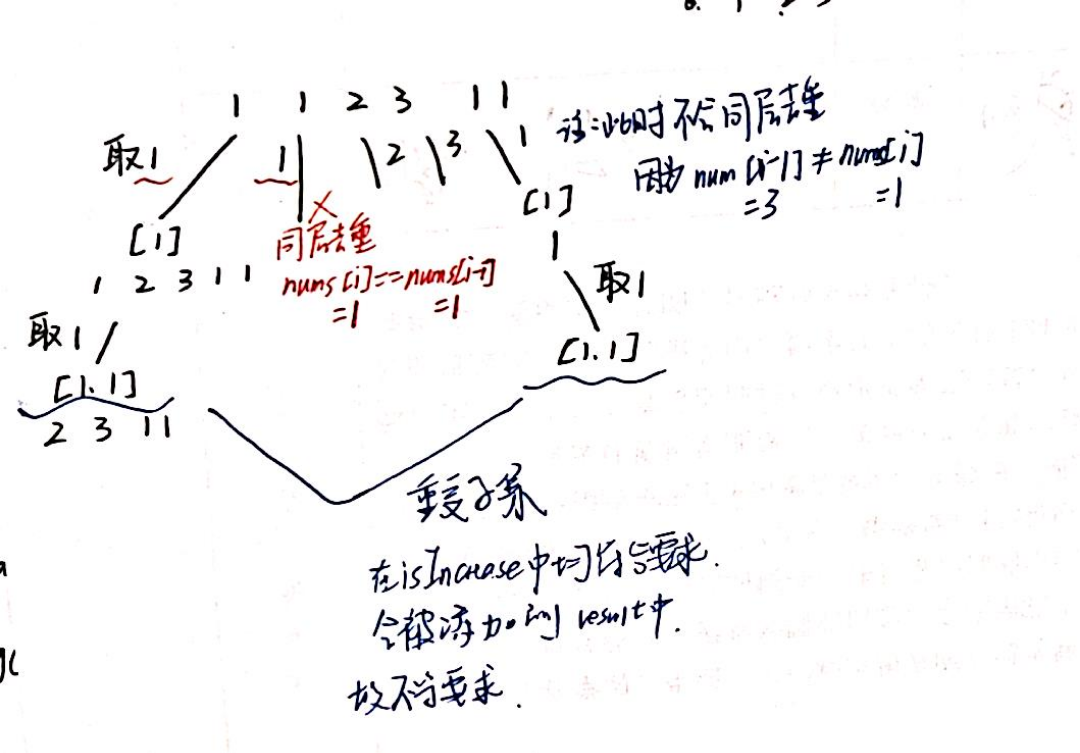 1 1 2 3 1 1
取1
1
2
3
1
注:此时不会同层去重
因为 num [i-1] ≠ nums[i]
=3 =1
[1]
×
同层去重
nums[i]==nums[i-1]
=1 =1
[1]
1 2 3 1 1
1
取1
取1
[1.1]
[1.1]
2 3 1 1
重复了
在isIncrease中均符合要求.
会被添加到 result中.
故不符要求.